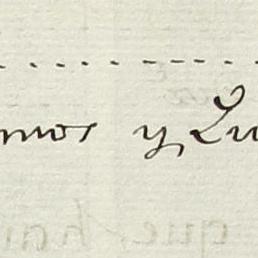 mos y Lu